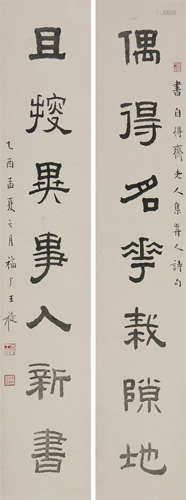 書自得齋老人集人詩句
偶得名花栽隙地
且搜異事入新書
乙酉孟夏之月福厂王禔